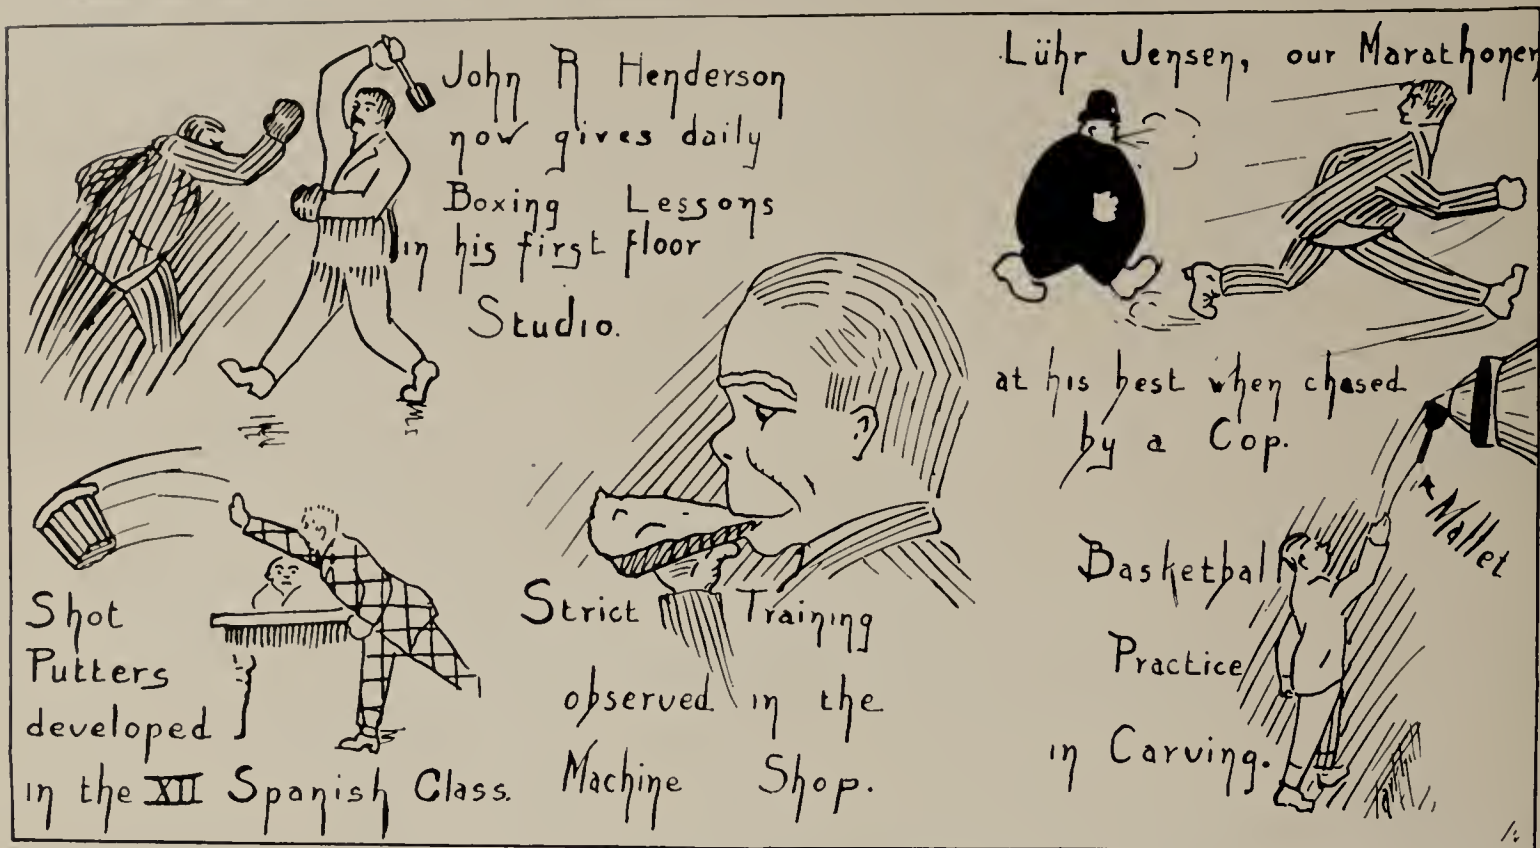 John R Henderson
now gives daily
Boxing Lessons
in his first floor
Studio.
Lühr Jensen, our Marathoner
at his best when chased
by a Cop.
Shot
Putters
developed
in the XII Spanish Class.
Strict Training
observed in the
Machine Shop.
Mallet
Basketball
Practice
in Carving.